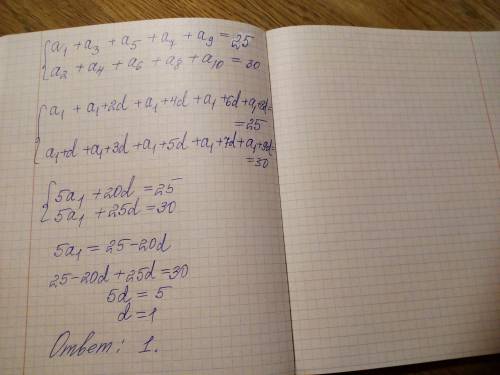 { a₁ + a₃ + a₅ + a₇ + a₉ = 25
a₂ + a₄ + a₆ + a₈ + a₁₀ = 30
{ a₁ + a₁+2d + a₁+4d + a₁+6d + a₁+8d =
= 25
a₁+d + a₁+3d + a₁+5d + a₁+7d + a₁+9d =
= 30
{ 5a₁ + 20d = 25
5a₁ + 25d = 30
5a₁ = 25 - 20d
25 - 20d + 25d = 30
5d = 5
d = 1
Ответ: 1.